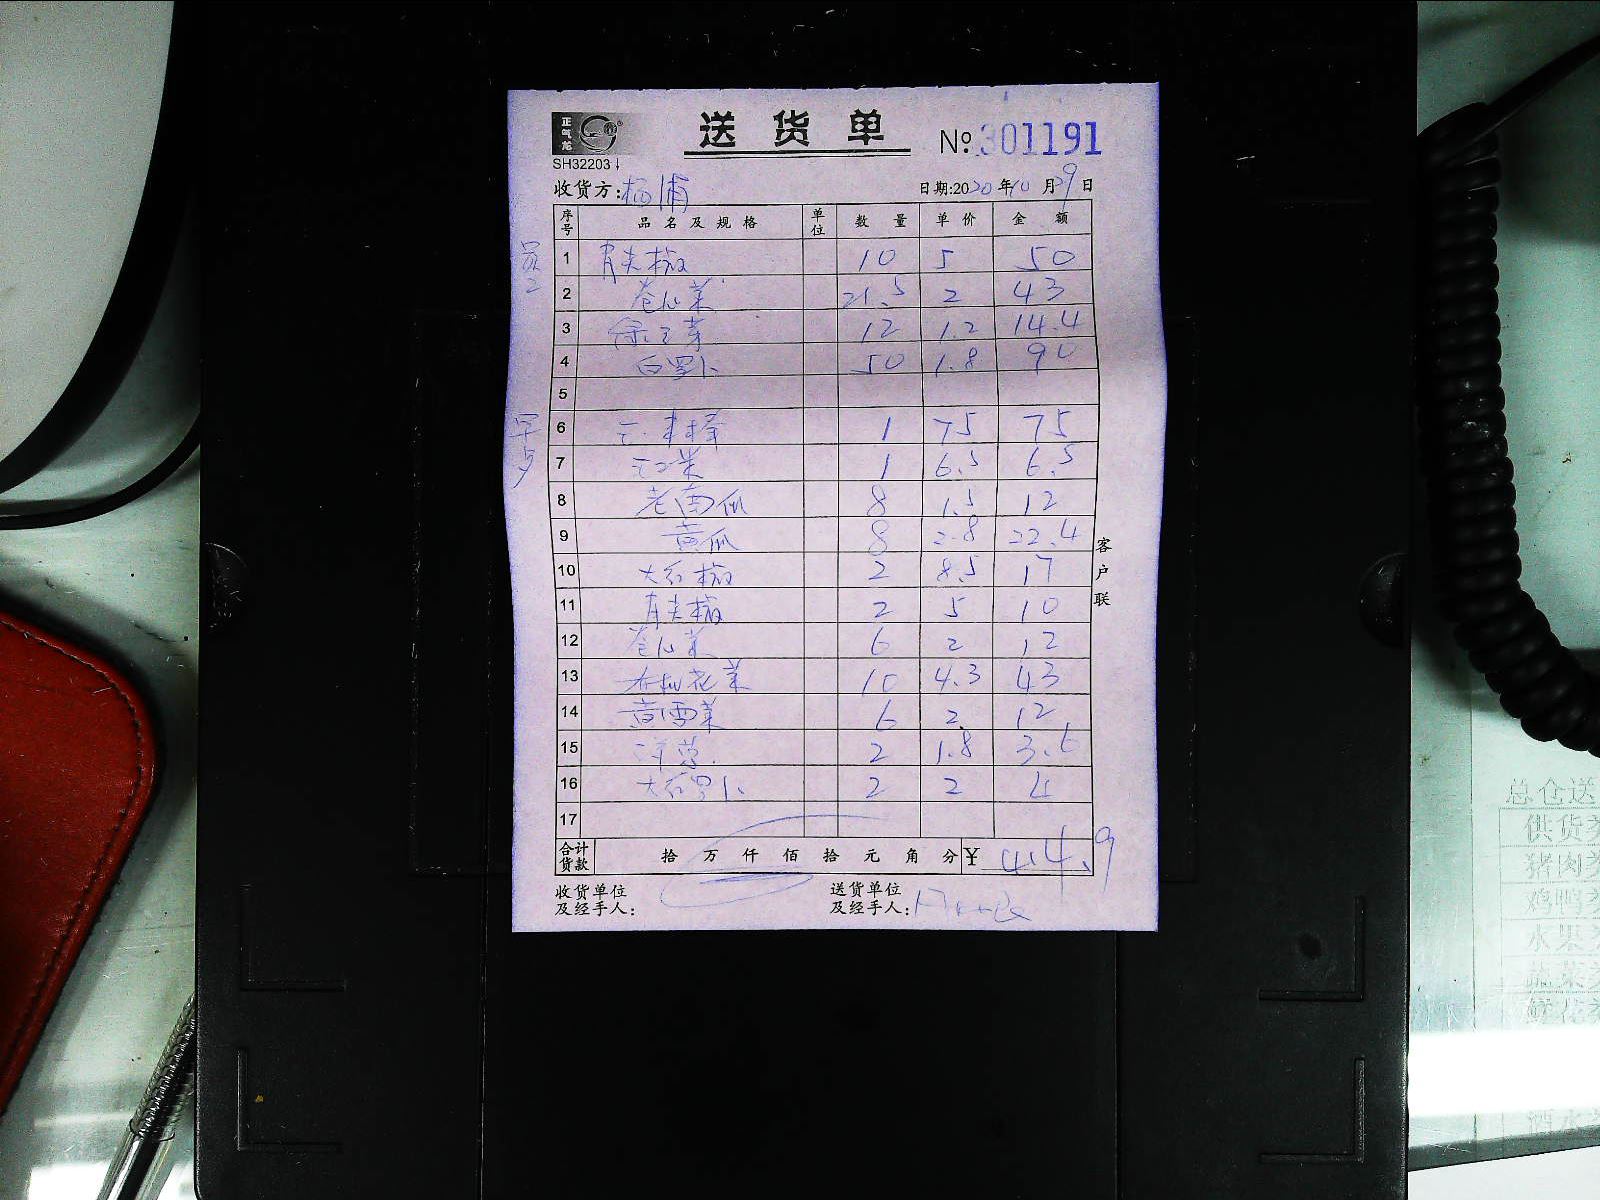 正气龙
送货单
№ 301191
SH32203
收货方：杨浦
日期:2020年10月29日
序号 品名及规格 单位 数量 单价 金额
1 青尖椒 10 5 50
2 卷心菜 21.5 2 43
3 绿豆芽 12 1.2 14.4
4 白萝卜 50 1.8 90
5
早点
6 1 75 75
7 1 6.5 6.5
8 老南瓜 8 1.5 12
9 黄瓜 8 2.8 22.4
10 大红椒 2 8.5 17
11 青尖椒 2 5 10
12 卷心菜 6 2 12
13 花菜 10 4.3 43
14 6 2 12
15 洋葱 2 1.8 3.6
16 大红萝卜 2 2 4
17
合计货款 拾 万 仟 佰 拾 元 角 分 ¥ 414.9
收货单位及经手人：
送货单位及经手人：
客户联
总仓送
供货
猪肉
鸡鸭
水果
蔬菜
鲜花
酒水